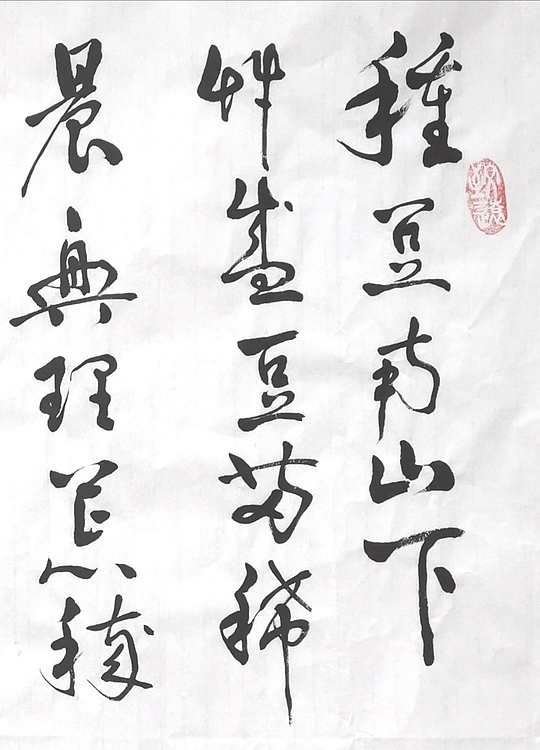 種豆南山下
艸盛豆苗稀
晨興理荒穢